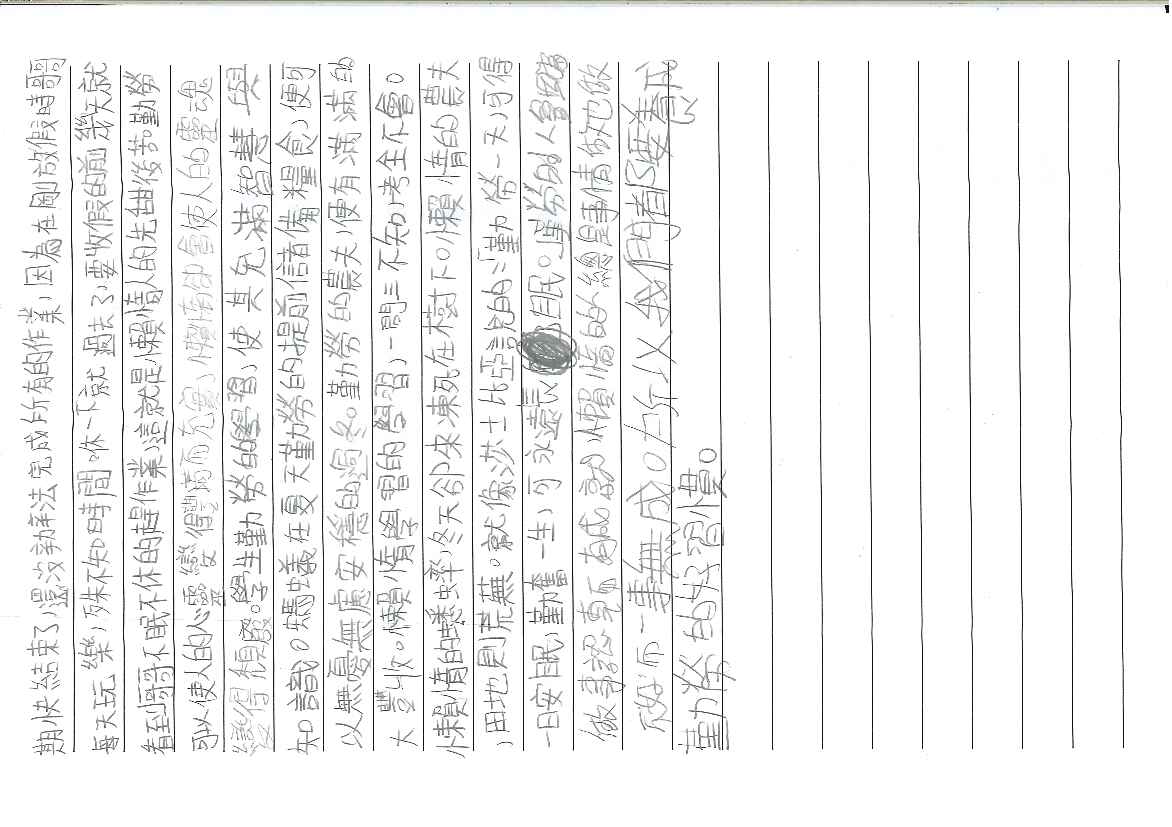 期快結束了，還沒辦法完成所有的作業，因為在剛放假時哥
每天玩樂，殊不知時間休一下就過去了，要收假的前幾天就
看到哥哥不眠不休的趕作業，這就是懶惰人的先甘後苦。勤勞
可以使人的心靈變得豐滿而充實，懶惰卻會使人的靈魂
變得頹廢。學生勤勞的學習，使其充滿智慧與
知識。螞蟻在夏天勤勞的提前儲備糧食，便可
以無憂無慮安穩的過冬。勤勞的農夫，便有滿滿的
大豐收。懶惰學習的學習，一問三不知，考全不會。
懶惰的蟋蟀，冬天卻來凍死在樹下。懶惰的農夫
，田地則荒蕪。就像莎士比亞說的：「勤勞一天，可得
一日安眠，勤奮一生，可永遠長眠。」勤勞的人會腳踏
做事認真而有成就，懶惰的人總是事情做也做
不好而一事無成。所以我們都要養成
勤勞的好習慣。